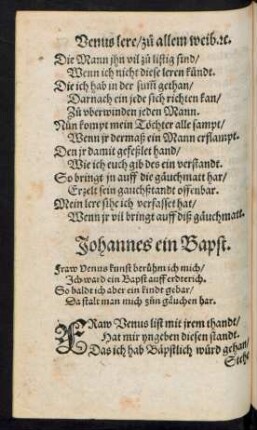 Venus lere/ zů allem weib. ꝛc.
Die Mann jhn vil zů listig sind/
Wenn ich nicht diese leren kündt.
Die ich hab in der sum̃ gethan/
Darnach ein jede sich richten kan/
Zů vberwinden jeden Mann.
Nůn kompt mein Töchter alle sampt/
Wenn jr dermaß ein Mann erflampt.
Den jr damit gefeßlet hand/
Wie ich euch gib des ein verstandt.
So bringt jn auff die gäuchmatt har/
Erzelt sein gauchßtandt offenbar.
Mein lere sihe ich verfasset hat/
Wenn jr vil bringt auff diß gäuchmatt.
Johannes ein Bapst.
Fraw Venus kunst berühm ich mich/
Ich ward ein Bapst auff erdterich.
So baldt ich aber ein kindt gebar/
Da stalt man mich zůn gäuchen har.
FRaw Venus list mit jrem thandt/
Hat mir yngeben diesen standt.
Das ich hab Bäpstlich würd gehan/
Sicht